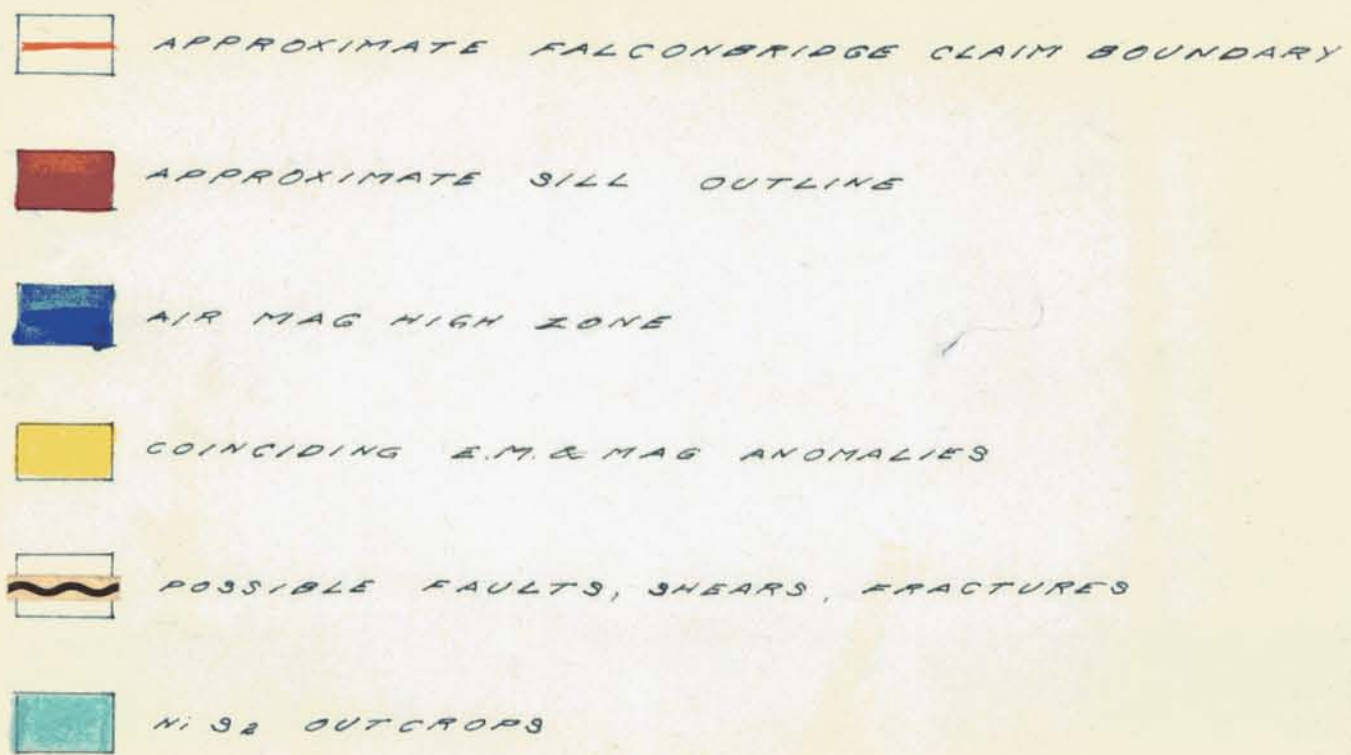 APPROXIMATE FALCONBRIDGE CLAIM BOUNDARY
APPROXIMATE SILL OUTLINE
AIR MAG HIGH ZONE
COINCIDING E.M. & MAG ANOMALIES
POSSIBLE FAULTS, SHEARS, FRACTURES
Ni S2 OUTCROPS